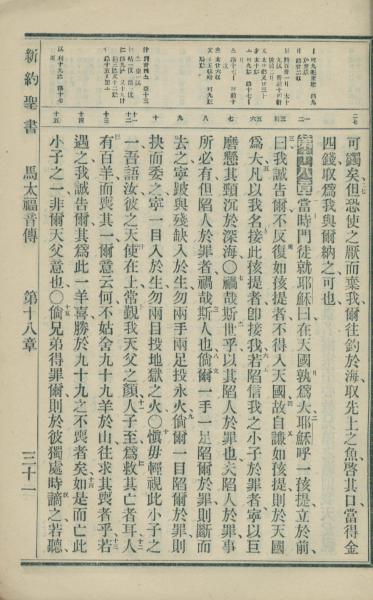 可蠲矣但恐使之厭而棄我爾往釣於海取先上之魚啓其口當得金
四錢取爲我與爾納之可也
第十八章當時門徒就耶穌曰在天國孰爲大耶穌呼一孩提立於前
曰我誠告爾不反復如孩提者不得入天國故自謙如孩提則於天國
爲大凡以我名接此孩提者卽接我若陷信我之小子於罪者寧以巨
磨懸其頸沉於深海〇禍哉斯世乎以其陷人於罪也夫陷人於罪事
所必有但陷人於罪者禍哉斯人也倘爾一手一足陷爾於罪則斷而
去之寧跛與殘缺入於生勿兩手兩足投永火倘爾一目陷爾於罪則
抉而委之寧一目入於生勿兩目投地獄之火〇愼毋輕視此小子之
一吾語汝彼之天使在上常覲我天父之顔人子至爲救其亡者耳人
有百羊而喪其一爾意云何不姑舍九十九羊於山往求其喪者乎若
遇之我誠告爾其爲此一羊喜勝於九十九之不喪者矣如是而亡此
小子之一非爾天父意也〇倘兄弟得罪爾則於彼獨處時謫之若聽
新約聖書 馬太福音傳 第十八章 三十一